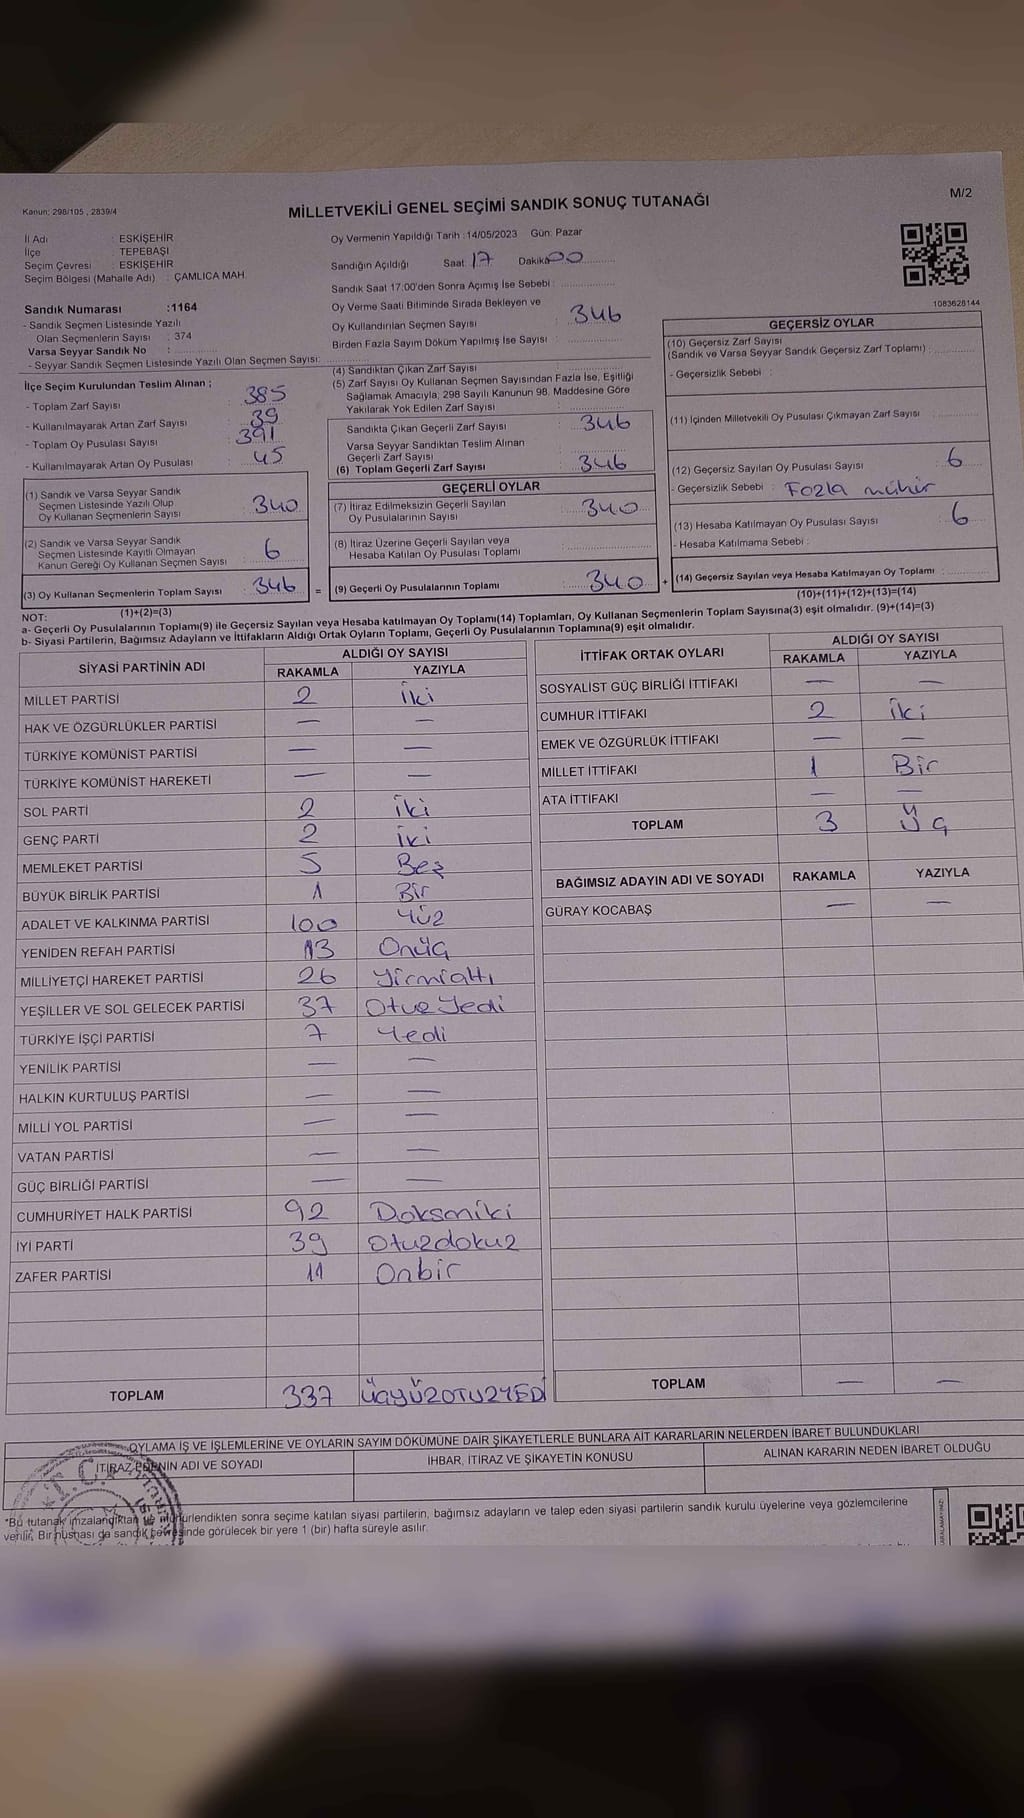 M/2
Kanun: 298/105 , 2839/4
MİLLETVEKİLİ GENEL SEÇİMİ SANDIK SONUÇ TUTANAĞI
İl Adı : ESKİŞEHİR
İlçe : TEPEBAŞI
Seçim Çevresi : ESKİŞEHİR
Seçim Bölgesi (Mahalle Adı) : ÇAMLICA MAH.
Sandık Numarası :1164
- Sandık Seçmen Listesinde Yazılı
Olan Seçmenlerin Sayısı : 374
Varsa Seyyar Sandık No :
- Seyyar Sandık Seçmen Listesinde Yazılı Olan Seçmen Sayısı:
İlçe Seçim Kurulundan Teslim Alınan ;
- Toplam Zarf Sayısı : 385
- Kullanılmayarak Artan Zarf Sayısı : 39
- Toplam Oy Pusulası Sayısı : 391
- Kullanılmayarak Artan Oy Pusulası : 45
(1) Sandık ve Varsa Seyyar Sandık
Seçmen Listesinde Yazılı Olup
Oy Kullanan Seçmenlerin Sayısı : 340
(2) Sandık ve Varsa Seyyar Sandık
Seçmen Listesinde Kayıtlı Olmayan
Kanun Gereği Oy Kullanan Seçmen Sayısı : 6
(3) Oy Kullanan Seçmenlerin Toplam Sayısı : 346
(1)+(2)=(3)
Oy Vermenin Yapıldığı Tarih :14/05/2023 Gün: Pazar
Sandığın Açıldığı Saat: 17 Dakika: 00
Sandık Saat 17:00'den Sonra Açımış İse Sebebi :
Oy Verme Saati Bitiminde Sırada Bekleyen ve
Oy Kullandırılan Seçmen Sayısı : 346
Birden Fazla Sayım Döküm Yapılmış İse Sayısı :
(4) Sandıktan Çıkan Zarf Sayısı
(5) Zarf Sayısı Oy Kullanan Seçmen Sayısından Fazla İse, Eşitliği
Sağlamak Amacıyla; 298 Sayılı Kanunun 98. Maddesine Göre
Yakılarak Yok Edilen Zarf Sayısı :
Sandıkta Çıkan Geçerli Zarf Sayısı : 346
Varsa Seyyar Sandıktan Teslim Alınan
Geçerli Zarf Sayısı
(6) Toplam Geçerli Zarf Sayısı : 346
GEÇERLİ OYLAR
(7) İtiraz Edilmeksizin Geçerli Sayılan
Oy Pusulalarının Sayısı : 340
(8) İtiraz Üzerine Geçerli Sayılan veya
Hesaba Katılan Oy Pusulası Toplamı :
= (9) Geçerli Oy Pusulalarının Toplamı : 340 +
1083628144
GEÇERSİZ OYLAR
(10) Geçersiz Zarf Sayısı
(Sandık ve Varsa Seyyar Sandık Geçersiz Zarf Toplamı) :
- Geçersizlik Sebebi :
(11) İçinden Milletvekili Oy Pusulası Çıkmayan Zarf Sayısı :
(12) Geçersiz Sayılan Oy Pusulası Sayısı : 6
- Geçersizlik Sebebi : Fazla mühür
(13) Hesaba Katılmayan Oy Pusulası Sayısı : 6
- Hesaba Katılmama Sebebi :
(14) Geçersiz Sayılan veya Hesaba Katılmayan Oy Toplamı :
(10)+(11)+(12)+(13)=(14)
NOT:
a- Geçerli Oy Pusulalarının Toplamı(9) ile Geçersiz Sayılan veya Hesaba katılmayan Oy Toplamı(14) Toplamları, Oy Kullanan Seçmenlerin Toplam Sayısına(3) eşit olmalıdır. (9)+(14)=(3)
b- Siyasi Partilerin, Bağımsız Adayların ve İttifakların Aldığı Ortak Oyların Toplamı, Geçerli Oy Pusulalarının Toplamına(9) eşit olmalıdır.
SİYASİ PARTİNİN ADI ALDIĞI OY SAYISI
RAKAMLA YAZIYLA
MİLLET PARTİSİ 2 iki
HAK VE ÖZGÜRLÜKLER PARTİSİ — —
TÜRKİYE KOMÜNİST PARTİSİ — —
TÜRKİYE KOMÜNİST HAREKETİ — —
SOL PARTİ 2 iki
GENÇ PARTİ 2 iki
MEMLEKET PARTİSİ 5 Beş
BÜYÜK BİRLİK PARTİSİ 1 Bir
ADALET VE KALKINMA PARTİSİ 100 Yüz
YENİDEN REFAH PARTİSİ 13 Onüç
MİLLİYETÇİ HAREKET PARTİSİ 26 Yirmialtı
YEŞİLLER VE SOL GELECEK PARTİSİ 37 Otuz Yedi
TÜRKİYE İŞÇİ PARTİSİ 7 Yedi
YENİLİK PARTİSİ — —
HALKIN KURTULUŞ PARTİSİ — —
MİLLİ YOL PARTİSİ — —
VATAN PARTİSİ — —
GÜÇ BİRLİĞİ PARTİSİ — —
CUMHURİYET HALK PARTİSİ 92 Doksaniki
İYİ PARTİ 39 Otuzdokuz
ZAFER PARTİSİ 11 Onbir
TOPLAM 337 ÜÇYÜZOTUZYEDİ
İTTİFAK ORTAK OYLARI ALDIĞI OY SAYISI
RAKAMLA YAZIYLA
SOSYALİST GÜÇ BİRLİĞİ İTTİFAKI — —
CUMHUR İTTİFAKI 2 iki
EMEK VE ÖZGÜRLÜK İTTİFAKI — —
MİLLET İTTİFAKI 1 Bir
ATA İTTİFAKI — —
TOPLAM 3 Üç
BAĞIMSIZ ADAYIN ADI VE SOYADI RAKAMLA YAZIYLA
GÜRAY KOCABAŞ — —
TOPLAM — —
OYLAMA İŞ VE İŞLEMLERİNE VE OYLARIN SAYIM DÖKÜMÜNE DAİR ŞİKAYETLERLE BUNLARA AİT KARARLARIN NELERDEN İBARET BULUNDUKLARI
İTİRAZ EDENİN ADI VE SOYADI İHBAR, İTİRAZ VE ŞİKAYETİN KONUSU ALINAN KARARIN NEDEN İBARET OLDUĞU
T.C.
*Bu tutanak imzalandıktan ve mühürlendikten sonra seçime katılan siyasi partilerin, bağımsız adayların ve talep eden siyasi partilerin sandık kurulu üyelerine veya gözlemcilerine
verilir. Bir nüshası da sandık çevresinde görülecek bir yere 1 (bir) hafta süreyle asılır.